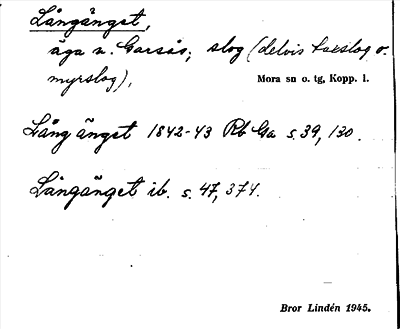 Långängst,
äga n. Garsås; slog (delvis hoslog o.
myrslog),
Mora sn o. tg, Kopp. l.
Lång ängst 1842-43 Rb Ga s. 39, 130.
Långänget ib. s. 47, 374.
Bror Lindén 1945.